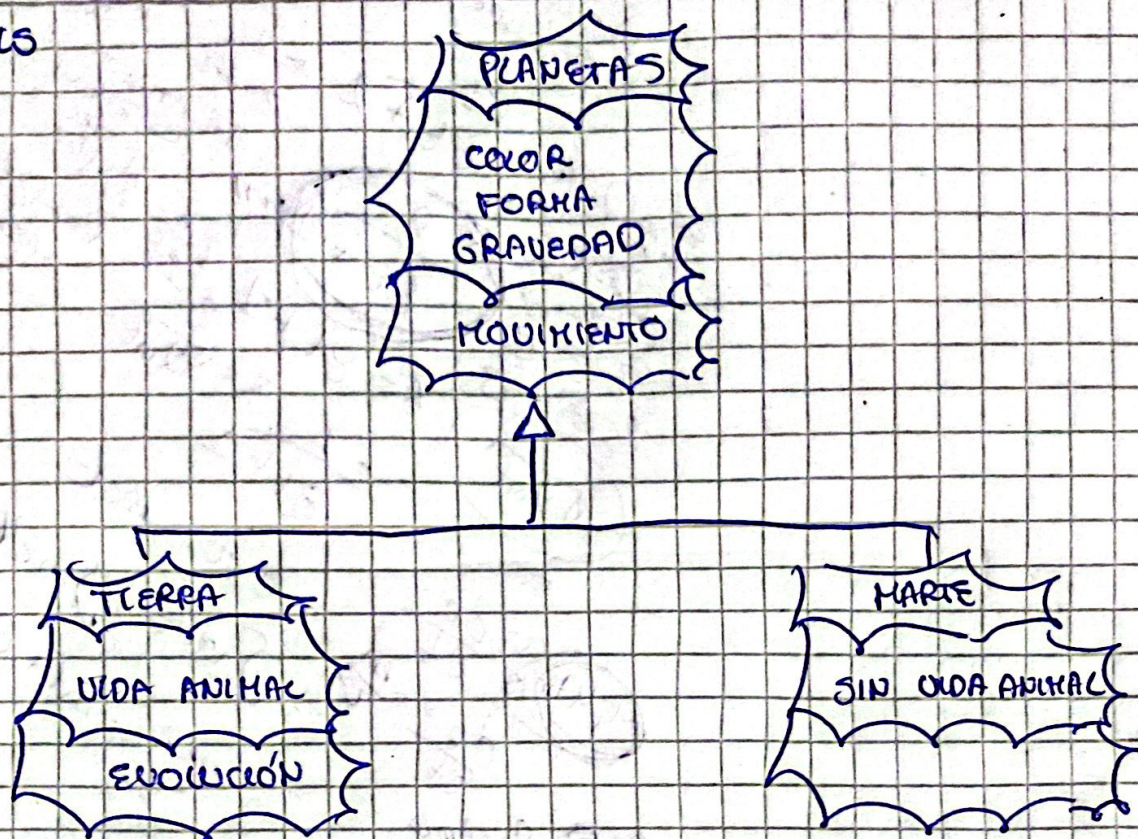 PLANETAS
COLOR
FORMA
GRAVEDAD
MOVIMIENTO
TIERRA
VIDA ANIMAL
EVOLUCIÓN
MARTE
SIN VIDA ANIMAL